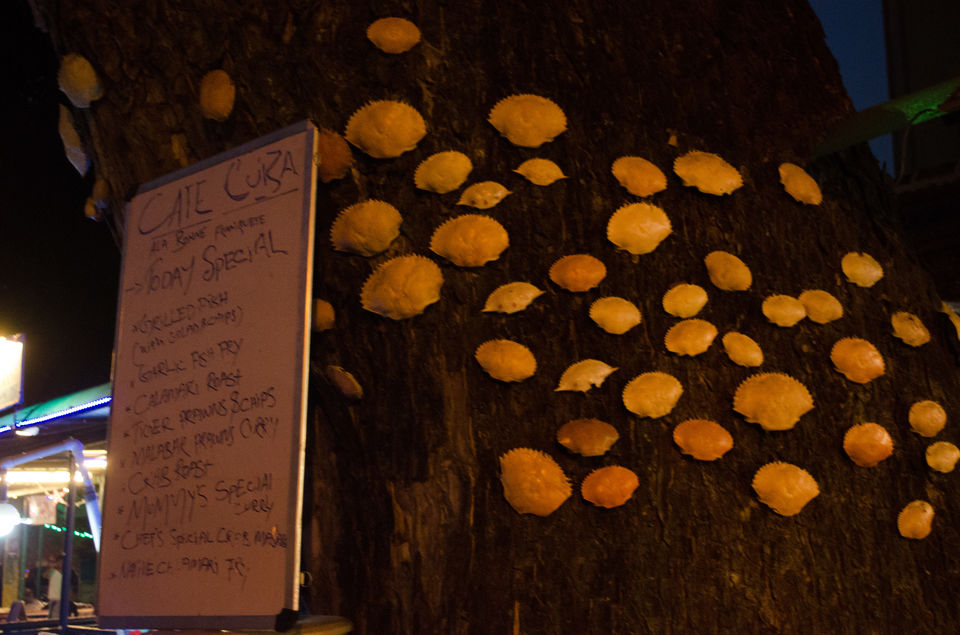 CAFE CUIZA
ALA BONNE FRANQUETE
→ TODAY SPECIAL
* GRILLED FISH
(with SALAD & CHIPS)
* GARLIC FISH FRY
* CALAMARI ROAST
* TIGER PRAWNS & CHIPS
* MALABAR PRAWNS CURRY
* CRAB ROAST
* MUMMY'S SPECIAL
CURRY
* CHEF'S SPECIAL CRAB